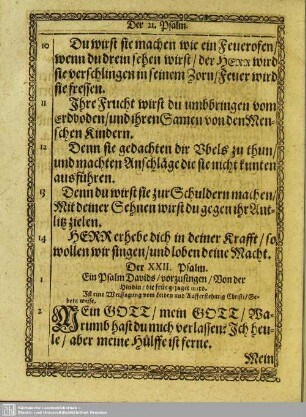 Der 21. Psalm.
10 Du wirst sie machen wie ein Feuerofen/
wenn du drein sehen wirst/ der HERR wird
sie verschlingen in seinem Zorn/ Feuer wird
sie fressen.
11 Ihre Frucht wirst du umbbringen vom
erdboden/ und ihren Samen von den Men-
schen Kindern.
12 Denn sie gedachten dir Vbels zu thun/
und machten Anschläge die sie nicht kunten
ausführen.
13 Denn du wirst sie zur Schuldern machen/
Mit deiner Sehnen wirst du gegen ihr Ant-
litz zielen.
14 HERR erhebe dich in deiner Krafft/ so
wollen wir singen/ und loben deine Macht.
Der XXII. Psalm.
1 Ein Psalm Davids/ vorzusingen/ Von der
Hindin/ die früe gejaget wird.
Ist eine Weissagung vom leiden und Aufferstehung Christi/ Ge-
bets weise.
2 MEin GOTT/ mein GOTT/ Wa-
rumb hast du mich verlassen? Ich heu-
le/ aber meine Hülffe ist ferne.
Mein